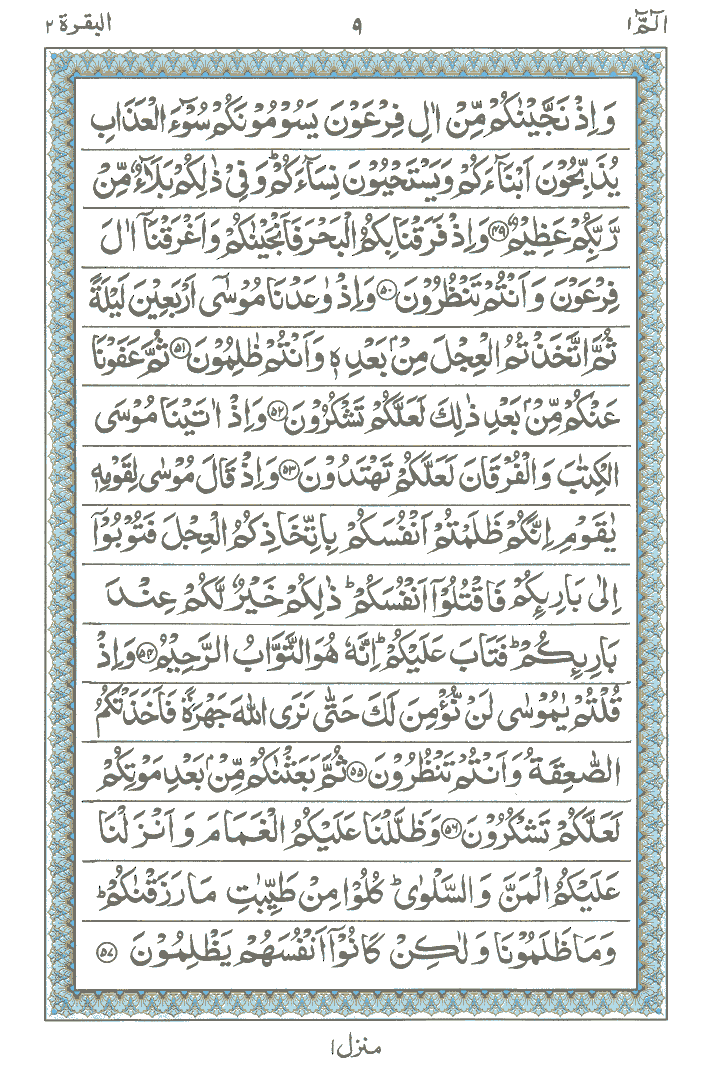 الٓمّٓ ۱ ۹ البقرة ۲
وَاِذْ نَجَّيْنٰكُمْ مِّنْ اٰلِ فِرْعَوْنَ يَسُوْمُوْنَكُمْ سُوْٓءَ الْعَذَابِ
يُذَبِّحُوْنَ اَبْنَآءَكُمْ وَيَسْتَحْيُوْنَ نِسَآءَكُمْ ؕ وَفِيْ ذٰلِكُمْ بَلَآءٌ مِّنْ
رَّبِّكُمْ عَظِيْمٌ ﴿۴۹﴾ وَاِذْ فَرَقْنَا بِكُمُ الْبَحْرَ فَاَنْجَيْنٰكُمْ وَاَغْرَقْنَآ اٰلَ
فِرْعَوْنَ وَاَنْتُمْ تَنْظُرُوْنَ ﴿۵۰﴾ وَاِذْ وٰعَدْنَا مُوْسٰٓى اَرْبَعِيْنَ لَيْلَةً
ثُمَّ اتَّخَذْتُمُ الْعِجْلَ مِنْۢ بَعْدِهٖ وَاَنْتُمْ ظٰلِمُوْنَ ﴿۵۱﴾ ثُمَّ عَفَوْنَا
عَنْكُمْ مِّنْۢ بَعْدِ ذٰلِكَ لَعَلَّكُمْ تَشْكُرُوْنَ ﴿۵۲﴾ وَاِذْ اٰتَيْنَا مُوْسَى
الْكِتٰبَ وَالْفُرْقَانَ لَعَلَّكُمْ تَهْتَدُوْنَ ﴿۵۳﴾ وَاِذْ قَالَ مُوْسٰى لِقَوْمِهٖ
يٰقَوْمِ اِنَّكُمْ ظَلَمْتُمْ اَنْفُسَكُمْ بِاتِّخَاذِكُمُ الْعِجْلَ فَتُوْبُوْٓا
اِلٰى بَارِئِكُمْ فَاقْتُلُوْٓا اَنْفُسَكُمْ ؕ ذٰلِكُمْ خَيْرٌ لَّكُمْ عِنْدَ
بَارِئِكُمْ ؕ فَتَابَ عَلَيْكُمْ ؕ اِنَّهٗ هُوَ التَّوَّابُ الرَّحِيْمُ ﴿۵۴﴾ وَاِذْ
قُلْتُمْ يٰمُوْسٰى لَنْ نُّؤْمِنَ لَكَ حَتّٰى نَرَى اللهَ جَهْرَةً فَاَخَذَتْكُمُ
الصّٰعِقَةُ وَاَنْتُمْ تَنْظُرُوْنَ ﴿۵۵﴾ ثُمَّ بَعَثْنٰكُمْ مِّنْۢ بَعْدِ مَوْتِكُمْ
لَعَلَّكُمْ تَشْكُرُوْنَ ﴿۵۶﴾ وَظَلَّلْنَا عَلَيْكُمُ الْغَمَامَ وَاَنْزَلْنَا
عَلَيْكُمُ الْمَنَّ وَالسَّلْوٰى ؕ كُلُوْا مِنْ طَيِّبٰتِ مَا رَزَقْنٰكُمْ ؕ
وَمَا ظَلَمُوْنَا وَلٰكِنْ كَانُوْٓا اَنْفُسَهُمْ يَظْلِمُوْنَ ﴿۵۷﴾
منزل ۱